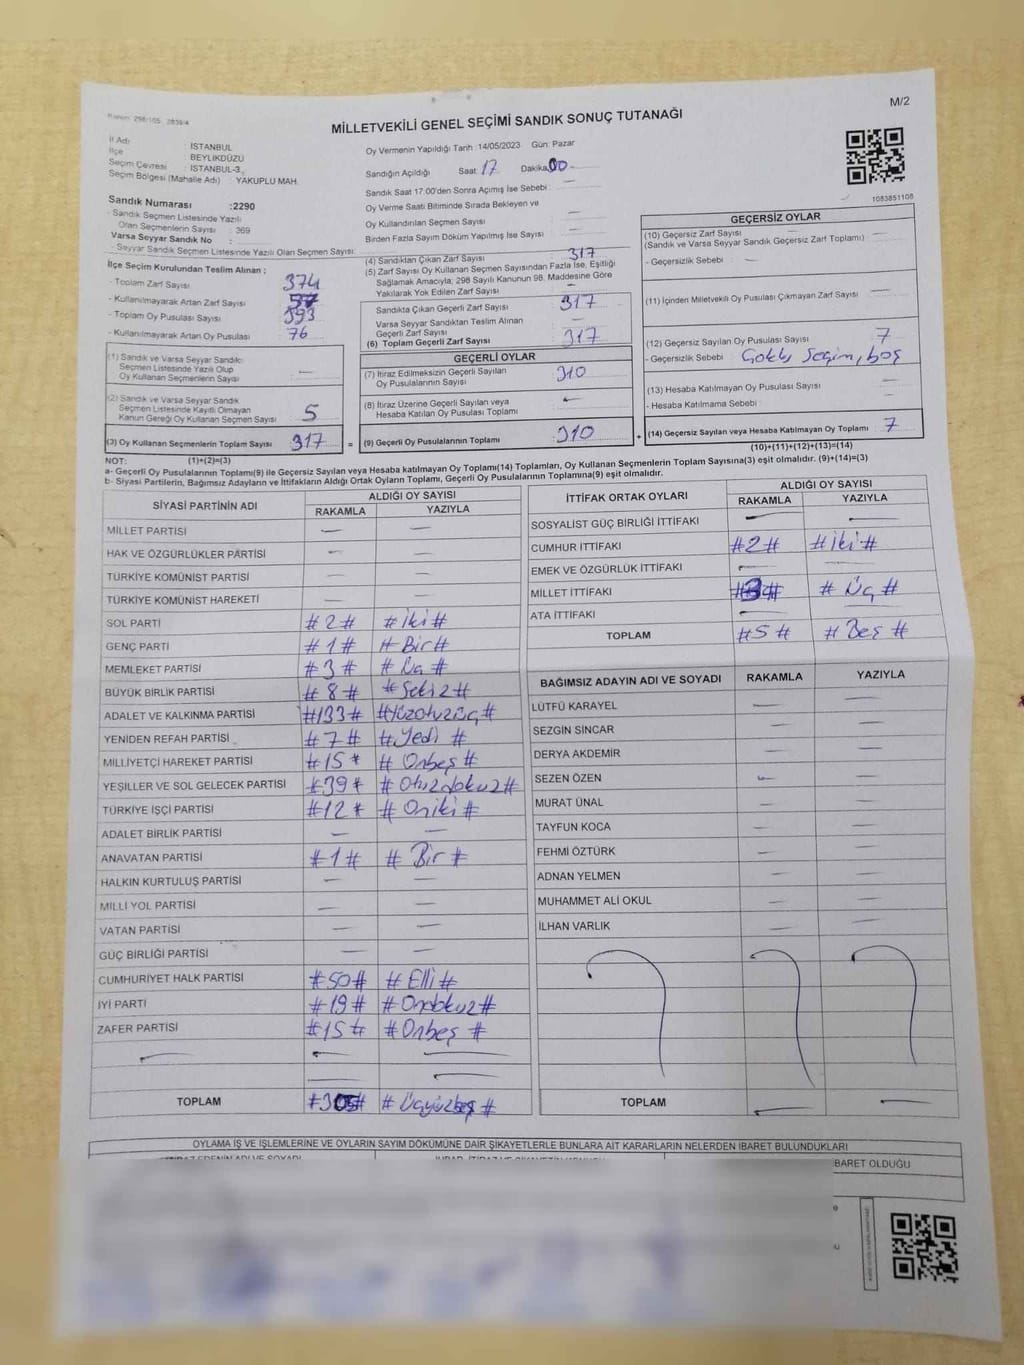 MİLLETVEKİLİ GENEL SEÇİMİ SANDIK SONUÇ TUTANAĞI
M/2
İl Adı : İSTANBUL
İlçe : BEYLİKDÜZÜ
Seçim Çevresi : İSTANBUL-3
Seçim Bölgesi (Mahalle Adı) : YAKUPLU MAH.
Sandık Numarası :2290
- Sandık Seçmen Listesinde Yazılı
Olan Seçmenlerin Sayısı : 369
Varsa Seyyar Sandık No :
- Seyyar Sandık Seçmen Listesinde Yazılı Olan Seçmen Sayısı:
İlçe Seçim Kurulundan Teslim Alınan :
- Toplam Zarf Sayısı 374
- Kullanılmayarak Artan Zarf Sayısı 57
- Toplam Oy Pusulası Sayısı 393
- Kullanılmayarak Artan Oy Pusulası 76
(1) Sandık ve Varsa Seyyar Sandık
Seçmen Listesinde Yazılı Olup
Oy Kullanan Seçmenlerin Sayısı —
(2) Sandık ve Varsa Seyyar Sandık
Seçmen Listesinde Kayıtlı Olmayan
Kanun Gereği Oy Kullanan Seçmen Sayısı 5
(3) Oy Kullanan Seçmenlerin Toplam Sayısı 317
(1)+(2)=(3)
Oy Vermenin Yapıldığı Tarih :14/05/2023 Gün: Pazar
Sandığın Açıldığı Saat 17 Dakika 00
Sandık Saat 17:00'den Sonra Açımış İse Sebebi : —
Oy Verme Saati Bitiminde Sırada Bekleyen ve
Oy Kullandırılan Seçmen Sayısı —
Birden Fazla Sayım Döküm Yapılmış İse Sayısı —
(4) Sandıktan Çıkan Zarf Sayısı 317
(5) Zarf Sayısı Oy Kullanan Seçmen Sayısından Fazla İse, Eşitliği
Sağlamak Amacıyla, 298 Sayılı Kanunun 98. Maddesine Göre
Yakılarak Yok Edilen Zarf Sayısı —
Sandıkta Çıkan Geçerli Zarf Sayısı 317
Varsa Seyyar Sandıktan Teslim Alınan
Geçerli Zarf Sayısı —
(6) Toplam Geçerli Zarf Sayısı 317
GEÇERLİ OYLAR
(7) İtiraz Edilmeksizin Geçerli Sayılan
Oy Pusulalarının Sayısı 310
(8) İtiraz Üzerine Geçerli Sayılan veya
Hesaba Katılan Oy Pusulası Toplamı —
= (9) Geçerli Oy Pusulalarının Toplamı 310
1083851108
GEÇERSİZ OYLAR
(10) Geçersiz Zarf Sayısı —
(Sandık ve Varsa Seyyar Sandık Geçersiz Zarf Toplamı)
- Geçersizlik Sebebi : —
(11) İçinden Milletvekili Oy Pusulası Çıkmayan Zarf Sayısı —
(12) Geçersiz Sayılan Oy Pusulası Sayısı 7
- Geçersizlik Sebebi : Çoklu Seçim, boş
(13) Hesaba Katılmayan Oy Pusulası Sayısı —
- Hesaba Katılmama Sebebi : —
+ (14) Geçersiz Sayılan veya Hesaba Katılmayan Oy Toplamı 7
(10)+(11)+(12)+(13)=(14)
NOT:
a- Geçerli Oy Pusulalarının Toplamı(9) ile Geçersiz Sayılan veya Hesaba katılmayan Oy Toplamı(14) Toplamları, Oy Kullanan Seçmenlerin Toplam Sayısına(3) eşit olmalıdır. (9)+(14)=(3)
b- Siyasi Partilerin, Bağımsız Adayların ve İttifakların Aldığı Ortak Oyların Toplamı, Geçerli Oy Pusulalarının Toplamına(9) eşit olmalıdır.
SİYASİ PARTİNİN ADI ALDIĞI OY SAYISI
RAKAMLA YAZIYLA
MİLLET PARTİSİ — —
HAK VE ÖZGÜRLÜKLER PARTİSİ — —
TÜRKİYE KOMÜNİST PARTİSİ — —
TÜRKİYE KOMÜNİST HAREKETİ — —
SOL PARTİ #2# #iki#
GENÇ PARTİ #1# #Bir#
MEMLEKET PARTİSİ #3# #Üç#
BÜYÜK BİRLİK PARTİSİ #8# #Sekiz#
ADALET VE KALKINMA PARTİSİ #133# #Yüzotuzüç#
YENİDEN REFAH PARTİSİ #7# #Yedi#
MİLLİYETÇİ HAREKET PARTİSİ #15# #Onbeş#
YEŞİLLER VE SOL GELECEK PARTİSİ #39# #Otuzdokuz#
TÜRKİYE İŞÇİ PARTİSİ #12# #Oniki#
ADALET BİRLİK PARTİSİ — —
ANAVATAN PARTİSİ #1# #Bir#
HALKIN KURTULUŞ PARTİSİ — —
MİLLİ YOL PARTİSİ — —
VATAN PARTİSİ — —
GÜÇ BİRLİĞİ PARTİSİ — —
CUMHURİYET HALK PARTİSİ #50# #Elli#
İYİ PARTİ #19# #Ondokuz#
ZAFER PARTİSİ #15# #Onbeş#
TOPLAM #305# #Üçyüzbeş#
İTTİFAK ORTAK OYLARI ALDIĞI OY SAYISI
RAKAMLA YAZIYLA
SOSYALİST GÜÇ BİRLİĞİ İTTİFAKI — —
CUMHUR İTTİFAKI #2# #iki#
EMEK VE ÖZGÜRLÜK İTTİFAKI — —
MİLLET İTTİFAKI #3# #Üç#
ATA İTTİFAKI — —
TOPLAM #5# #Beş#
BAĞIMSIZ ADAYIN ADI VE SOYADI RAKAMLA YAZIYLA
LÜTFÜ KARAYEL — —
SEZGİN SİNCAR — —
DERYA AKDEMİR — —
SEZEN ÖZEN — —
MURAT ÜNAL — —
TAYFUN KOCA — —
FEHMİ ÖZTÜRK — —
ADNAN YELMEN — —
MUHAMMET ALİ OKUL — —
İLHAN VARLIK — —
TOPLAM — —
OYLAMA İŞ VE İŞLEMLERİNE VE OYLARIN SAYIM DÖKÜMÜNE DAİR ŞİKAYETLERLE BUNLARA AİT KARARLARIN NELERDEN İBARET BULUNDUKLARI
BARET OLDUĞU